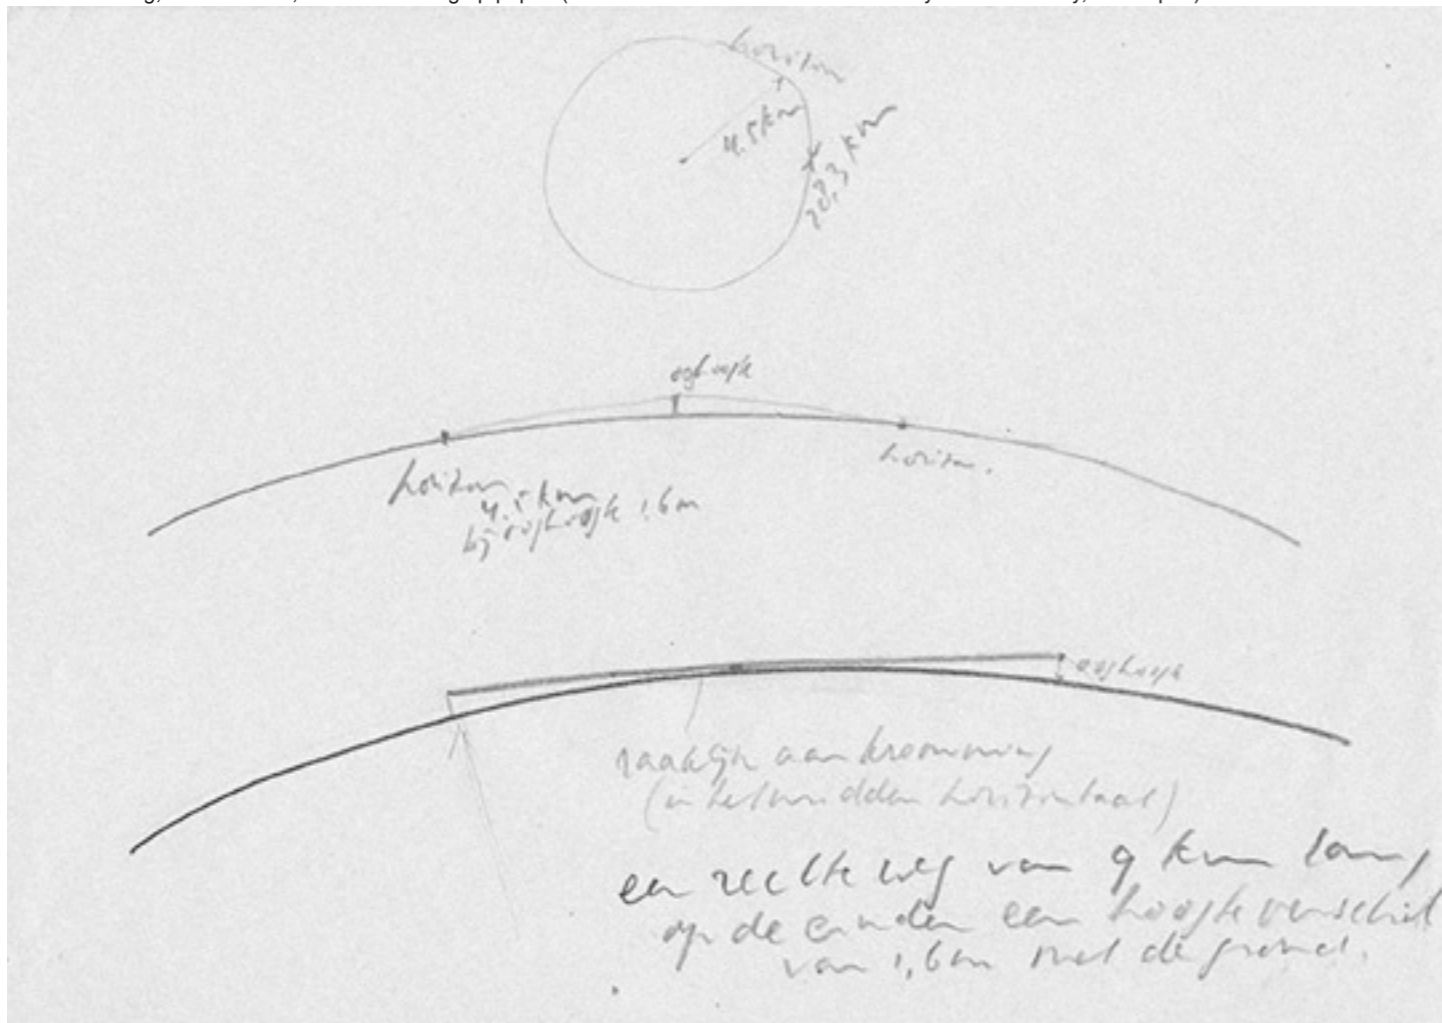 horizon
4.5 km
28,3 km
ooghoogte
horizon
4.5 km
bij ooghoogte 1,6m
horizon.
ooghoogte
raaklijn aan kromming
(in het midden horizontaal)
een rechte weg van 9 km lang
op de einden een hoogteverschil
van 1,6m met de grond.